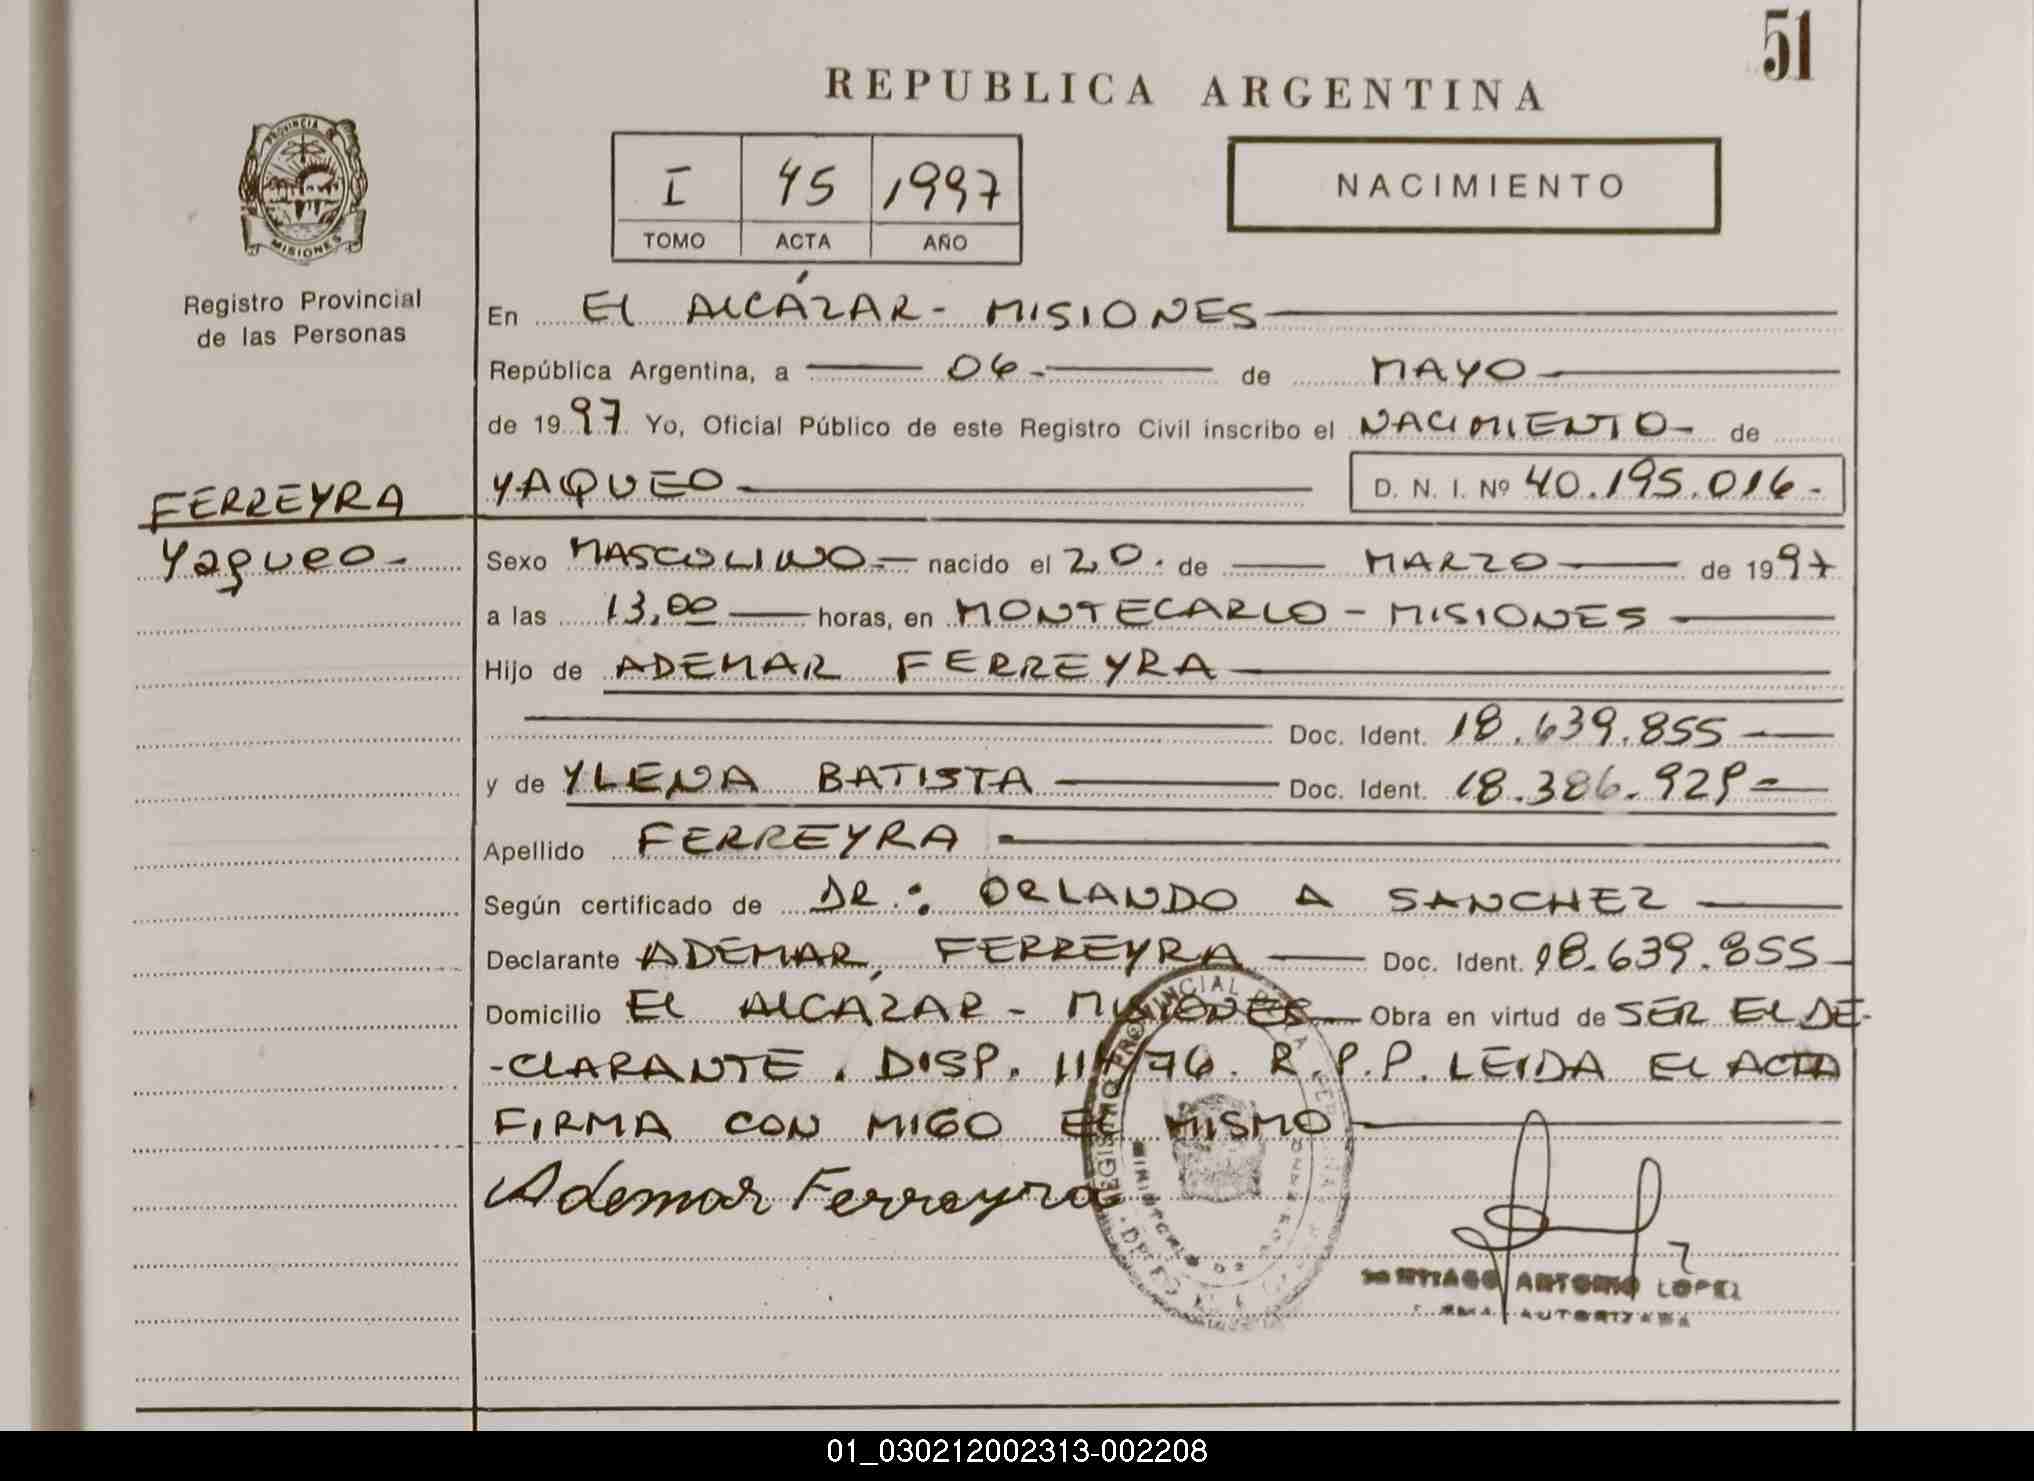 51
REPUBLICA ARGENTINA
I 45 1997
TOMO ACTA AÑO
NACIMIENTO
PROVINCIA DE
MISIONES
Registro Provincial
de las Personas
En El ALCÁZAR - MISIONES
República Argentina, a 06 - de MAYO
de 1997 Yo, Oficial Público de este Registro Civil inscribo el NACIMIENTO - de
YAQUEO D. N. I. Nº 40.195.016.-
FERREYRA
Yaqueo -
Sexo MASCULINO - nacido el 20. de MARZO de 1997
a las 13,00 horas, en MONTECARLO - MISIONES
Hijo de ADEMAR FERREYRA
Doc. Ident. 18.639.855
y de YLENA BATISTA Doc. Ident. 18.386.929 -
Apellido FERREYRA
Según certificado de DR.: ORLANDO A SANCHEZ
Declarante ADEMAR, FERREYRA Doc. Ident. 18.639.855
Domicilio El ALCAZAR - MISIONES Obra en virtud de SER EL DE-
-CLARANTE. DISP. 111/76. R.P.P. LEIDA EL ACTA
FIRMA CON MIGO EL MISMO
Ademar Ferreyra
SANTIAGO ANTONIO LOPEZ
FIRMA AUTORIZADA
01_030212002313-002208